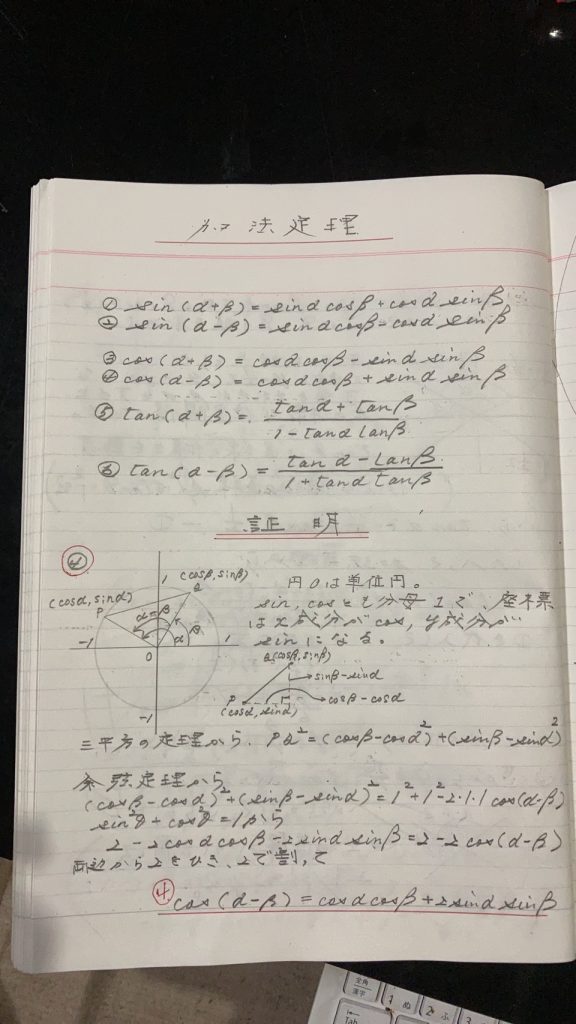 加法定理
① sin(α+β)=sinαcosβ+cosαsinβ
② sin(α-β)=sinαcosβ-cosαsinβ
③ cos(α+β)=cosαcosβ-sinαsinβ
④ cos(α-β)=cosαcosβ+sinαsinβ
⑤ tan(α+β)= tanα+tanβ / 1-tanαtanβ
⑥ tan(α-β)= tanα-tanβ / 1+tanαtanβ
証明
④
1 (cosβ,sinβ)
Q
(cosα,sinα)
P
α-β
r
α β
-1 0 1
-1
円Oは単位円。
sin,cosとも分母1で、座標
はx成分がcos,y成分が
sinになる。
Q(cosβ,sinβ)
sinβ-sinα
P
(cosα,sinα)
cosβ-cosα
三平方の定理から、PQ²=(cosβ-cosα)²+(sinβ-sinα)²
余弦定理から
(cosβ-cosα)²+(sinβ-sinα)²=1²+1²-2・1・1cos(α-β)
sin²θ+cos²θ=1から
2-2cosαcosβ-2sinαsinβ=2-2cos(α-β)
両辺から2をひき、-2で割って
④ cos(α-β)=cosαcosβ+2sinαsinβ
全角
漢字
1 ぬ
2 ふ
3
Tab